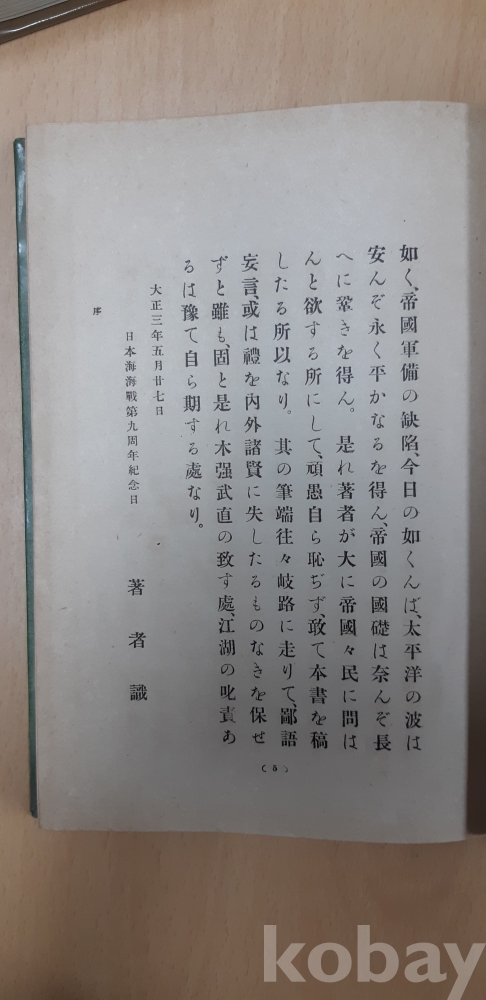 如く、帝國軍備の缺陷、今日の如くんば、太平洋の波は
安んぞ永く平かなるを得ん、帝國の國礎は奈んぞ長
へに鞏きを得ん。是れ著者が大に帝國々民に問は
んと欲する所にして、頑愚自ら恥ぢず、敢て本書を稿
したる所以なり。其の筆端往々岐路に走りて、鄙語
妄言、或は禮を內外諸賢に失したるものなきを保せ
ずと雖も、固と是れ木强武直の致す處、江湖の叱責あ
るは豫て自ら期する處なり。
大正三年五月廿七日
日本海海戰第九周年紀念日
著者識
序
(5)
kobay